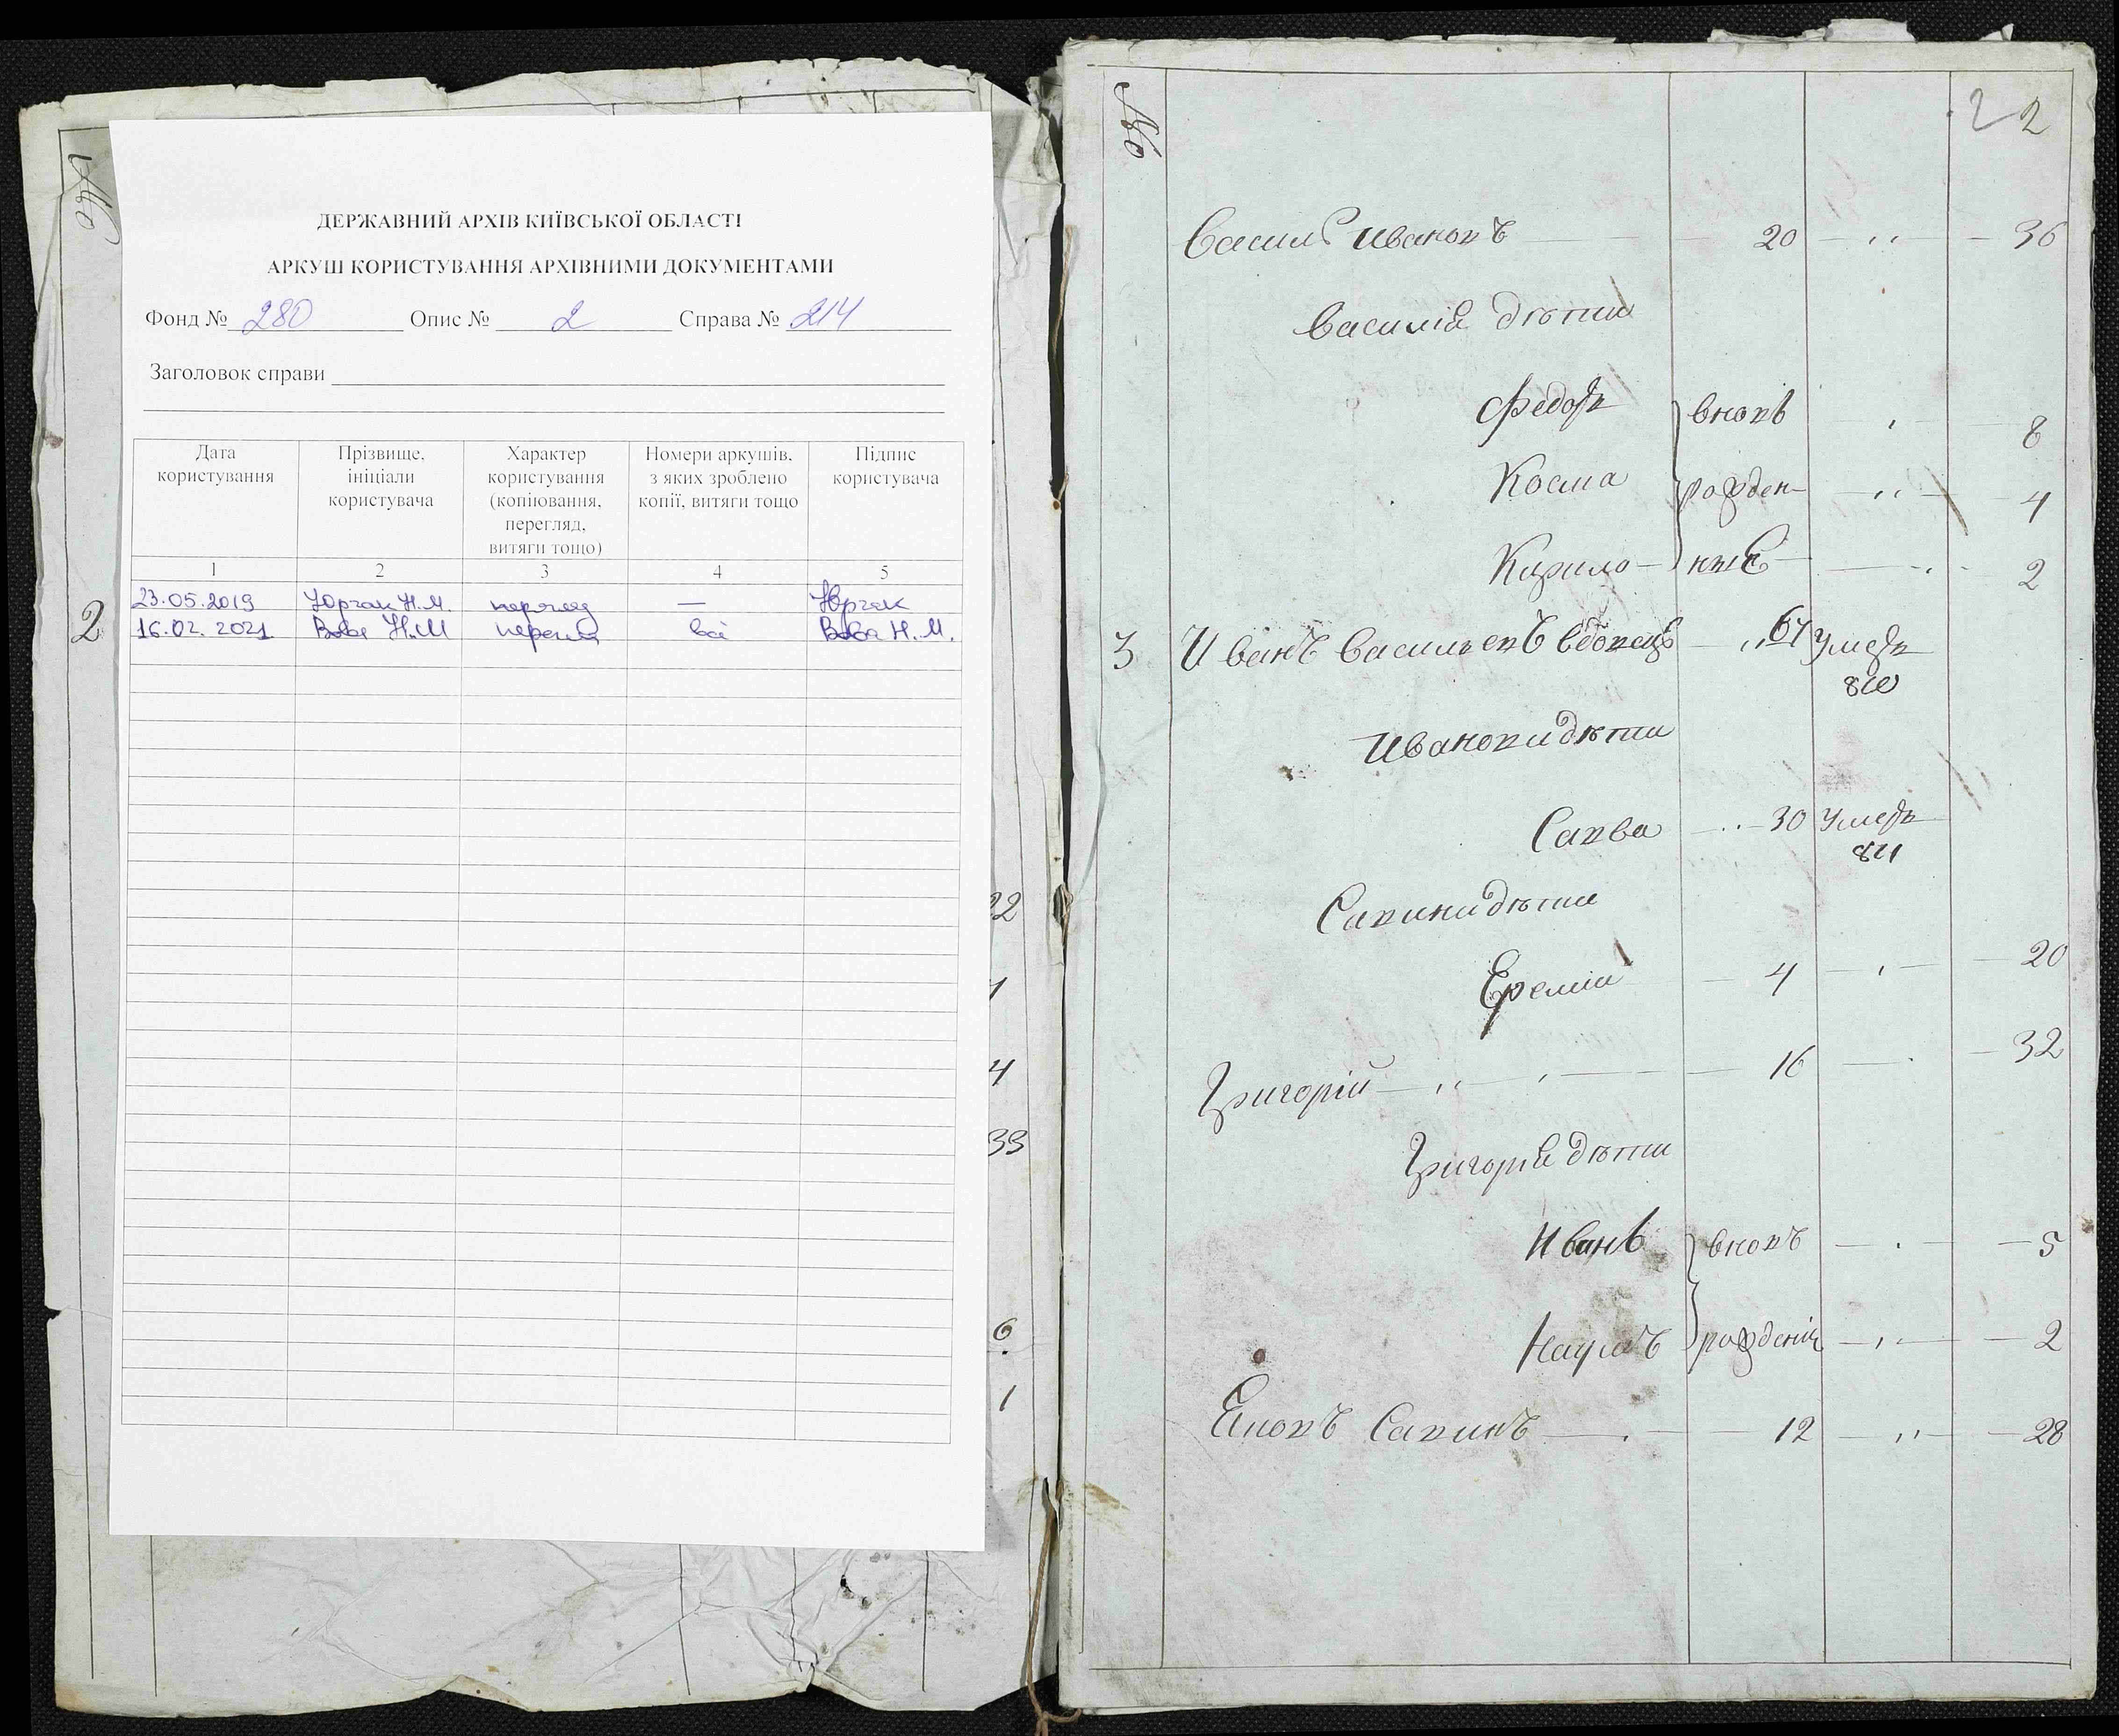 №
2
22
4
33
6
1
ДЕРЖАВНИЙ АРХІВ КИЇВСЬКОЇ ОБЛАСТІ
АРКУШ КОРИСТУВАННЯ АРХІВНИМИ ДОКУМЕНТАМИ
Фонд № 280 Опис № 2 Справа № 214
Заголовок справи
Дата користування
Прізвище, ініціали користувача
Характер користування (копіювання, перегляд, витяги тощо)
Номери аркушів, з яких зроблено копії, витяги тощо
Підпис користувача
1 2 3 4 5
23.05.2019 Юрчак Н.М. перегляд — Юрчак
16.02.2021 Вова Н.М. перегляд всі Вова Н.М.
№ 2 2
Василь Ивановъ 20 36
Василія дѣти
Федоръ вновъ 8
Косма рожден- 4
Кирило ные 2
3 Иванъ Васильевъ вдовецъ 67 Умеръ
Иванови дѣти
Савва 30 Умеръ
811
Савини дѣти
Еремій 4 20
Григорій 16 32
Григорія дѣти
Иванъ вновъ 5
Наумъ рожденія 2
Савинъ 12 28